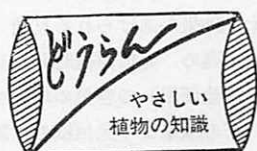 どうらん
やさしい
植物の知識